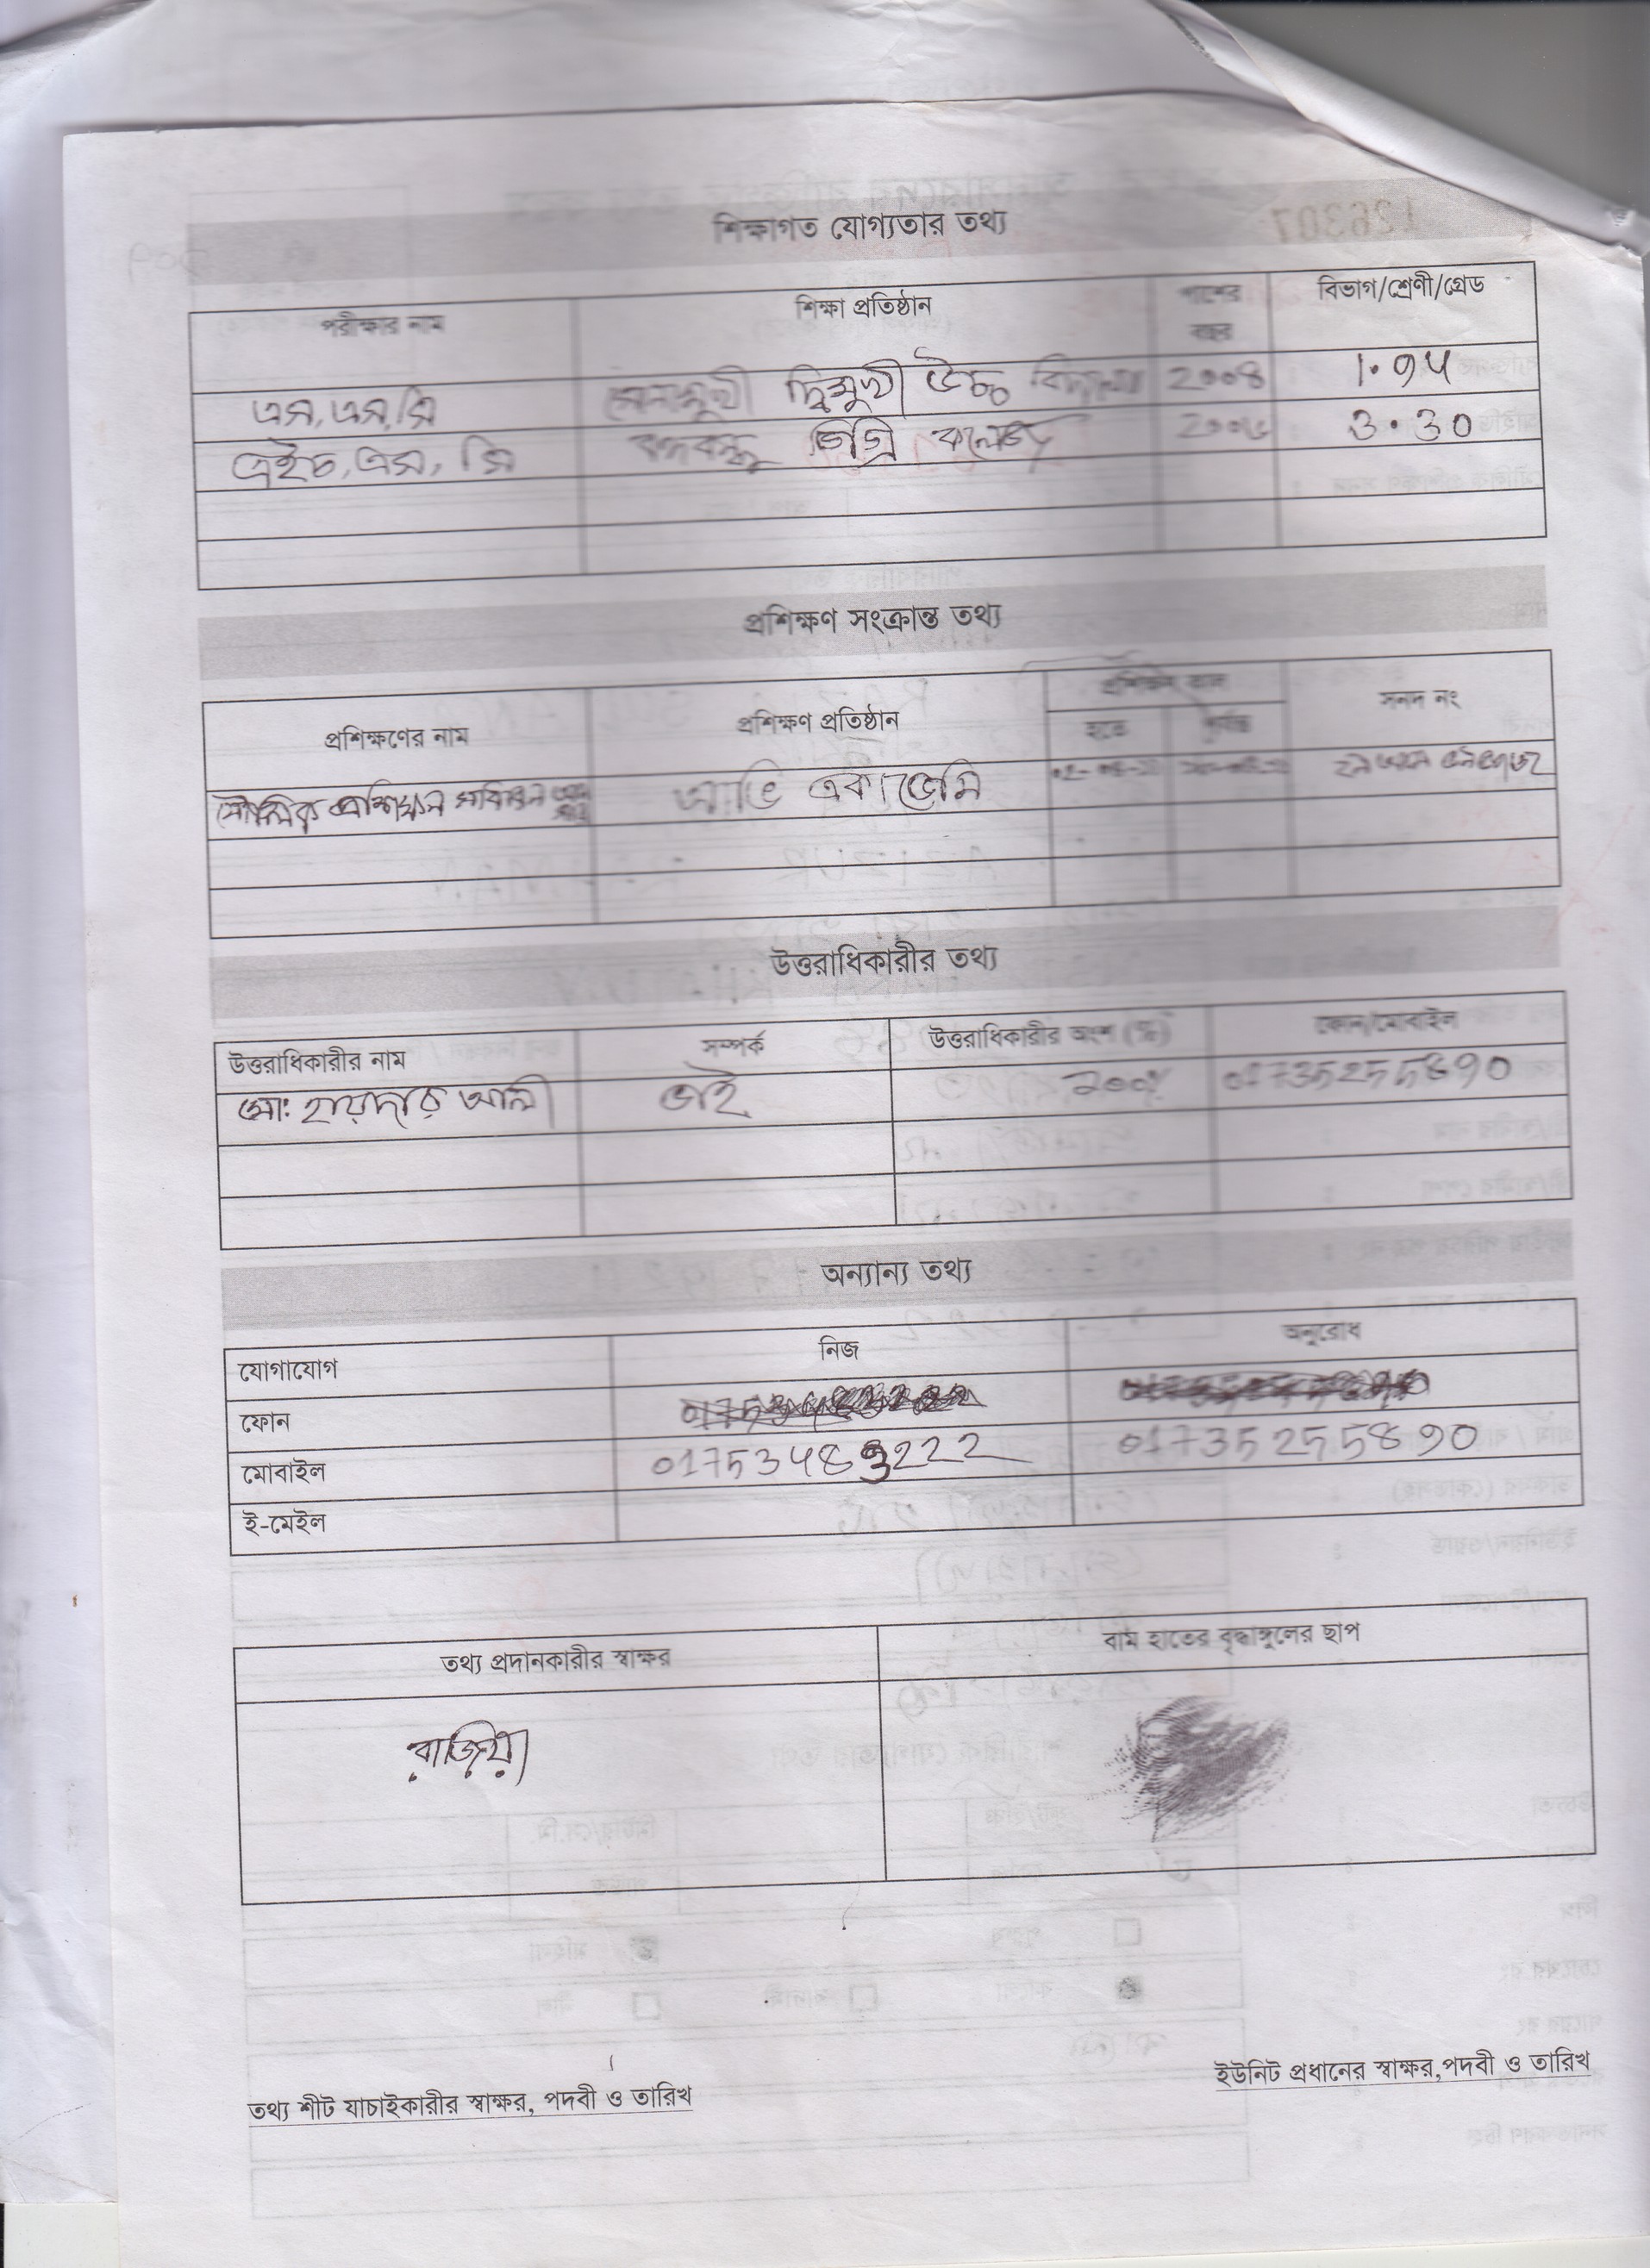 শিক্ষাগত যোগ্যতার তথ্য
পরীক্ষার নাম শিক্ষা প্রতিষ্ঠান পাশের বছর বিভাগ/শ্রেণী/গ্রেড
এস,এস,সি দ্বিমুখী উচ্চ বিদ্যালয় 2008 1.94
এইচ,এস,সি বঙ্গবন্ধু ডিগ্রি কলেজ 3.30
প্রশিক্ষণ সংক্রান্ত তথ্য
প্রশিক্ষণের নাম প্রশিক্ষণ প্রতিষ্ঠান প্রশিক্ষণ কাল সনদ নং
হতে পর্যন্ত
মৌলিক প্রশিক্ষন একাডেমি
উত্তরাধিকারীর তথ্য
উত্তরাধিকারীর নাম সম্পর্ক উত্তরাধিকারীর অংশ (%) ফোন/মোবাইল
মো: হায়দার আলী ভাই ১০০% 01735255890
অন্যান্য তথ্য
যোগাযোগ নিজ অনুরোধ
ফোন
মোবাইল 01753483222 01735255890
ই-মেইল
তথ্য প্রদানকারীর স্বাক্ষর বাম হাতের বৃদ্ধাঙ্গুলের ছাপ
রাজিয়া
তথ্য শীট যাচাইকারীর স্বাক্ষর, পদবী ও তারিখ ইউনিট প্রধানের স্বাক্ষর,পদবী ও তারিখ